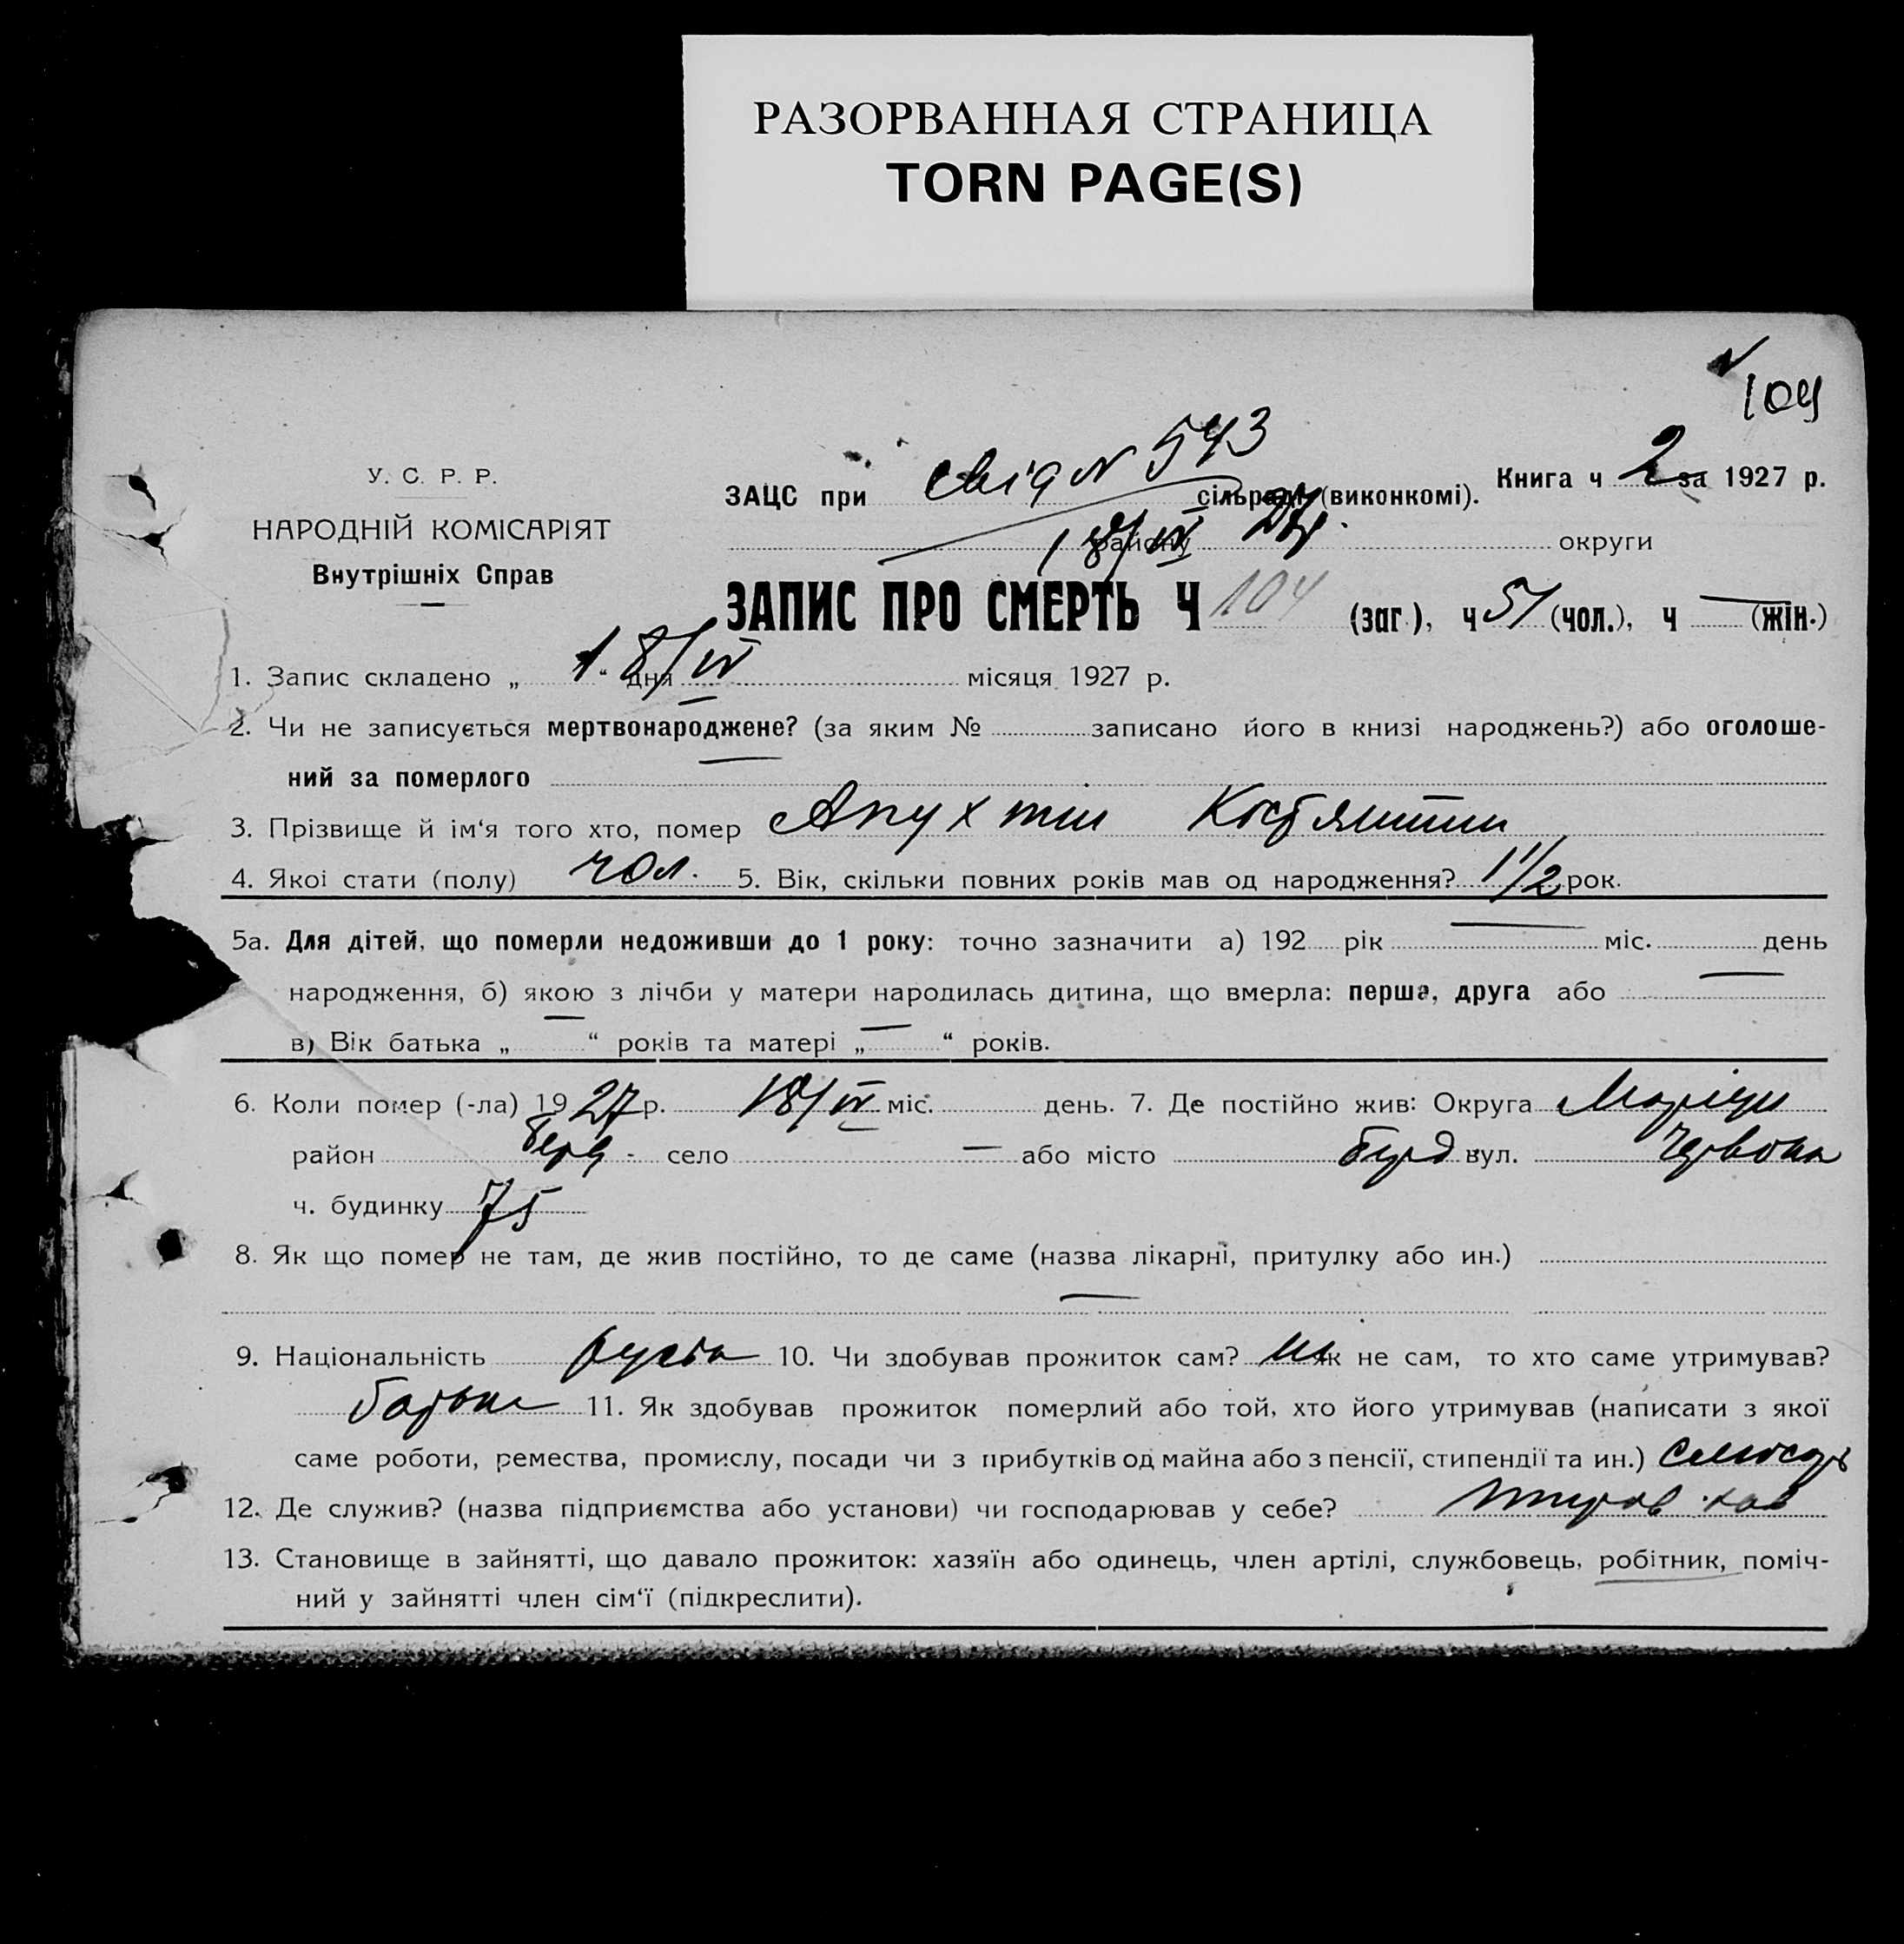 РАЗОРВАННАЯ СТРАНИЦА
TORN PAGE(S)
У. С. Р. Р.
НАРОДНІЙ КОМІСАРІЯТ
Внутрішніх Справ
ЗАЦС при свід N 543 сільраді (виконкомі).
Книга ч 2 за 1927 р.
18/IV 27 району округи
ЗАПИС ПРО СМЕРТЬ Ч 104 (заг.), ч 51 (чол.), ч — (жін.)
1. Запис складено „ 18/IV “ дня місяця 1927 р.
2. Чи не записується мертвонароджене? (за яким № записано його в книзі народжень?) або оголоше-
ний за померлого —
3. Прізвище й ім‘я того хто, помер Апухтин Костянтин
4. Якоі стати (полу) чол. 5. Вік, скільки повних років мав од народження? 1 1/2 рок.
5а. Для дітей, що померли недоживши до 1 року: точно зазначити а) 192 рік — міс. день
народження, б) якою з лічби у матери народилась дитина, що вмерла: перша, друга або —
в) Вік батька „ — “ років та матері „ — “ років.
6. Коли помер (-ла) 1927 р. 18/IV міс. день. 7. Де постійно жив: Округа Маріуп
район Берд - село — або місто Берд вул. Червона
ч. будинку 75
8. Як що помер не там, де жив постійно, то де саме (назва лікарні, притулку або ин.)
—
9. Національність 10. Чи здобував прожиток сам? ні як не сам, то хто саме утримував?
батько 11. Як здобував прожиток померлий або той, хто його утримував (написати з якої
саме роботи, ремества, промислу, посади чи з прибутків од майна або з пенсії, стипендії та ин.) слюсарь
12. Де служив? (назва підприємства або установи) чи господарював у себе?
13. Становище в зайнятті, що давало прожиток: хазяїн або одинець, член артілі, службовець, робітник, поміч-
ний у зайнятті член сім‘ї (підкреслити).